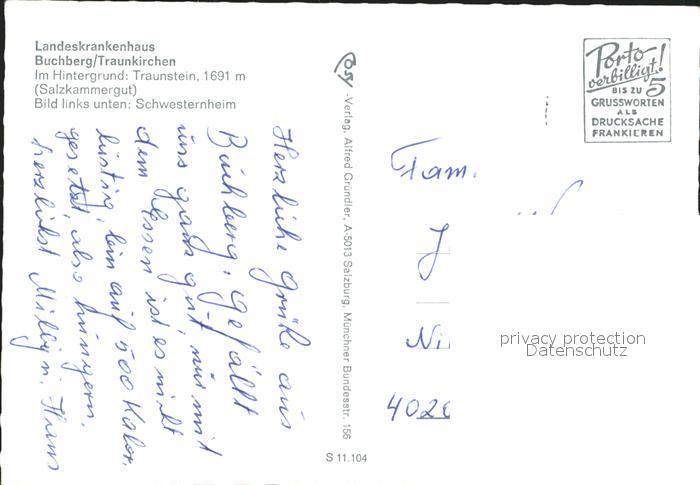 Landeskrankenhaus
Buchberg/Traunkirchen
Im Hintergrund: Traunstein, 1691 m
(Salzkammergut)
Bild links unten: Schwesternheim
Herzliche Grüße aus
Buchberg. Gefällt
uns ganz gut, nur mit
dem Essen ist es nicht
lustig, bin auf 500 Kalor.
gesetzt, also hungern.
herzlichst
Cosy -Verlag, Alfred Gründler, A-5013 Salzburg, Münchner Bundesstr. 156
S 11.104
Porto
verbilligt!
BIS ZU 5
GRUSSWORTEN
ALS
DRUCKSACHE
FRANKIEREN
Fam.
J
Ni
402
privacy protection
Datenschutz